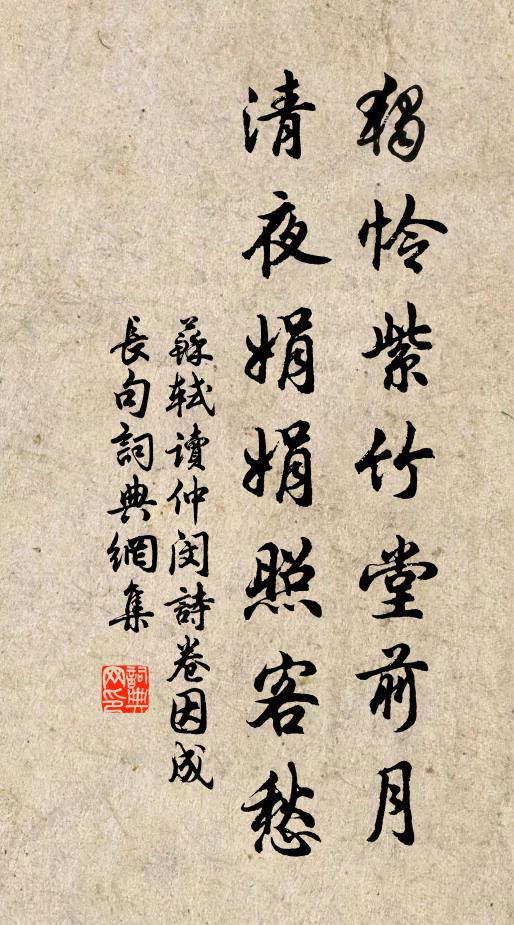 獨憐紫竹堂前月
清夜娟娟照客愁
蘇軾讀仲閔詩卷因成
長句詞典網集
詞典
网印